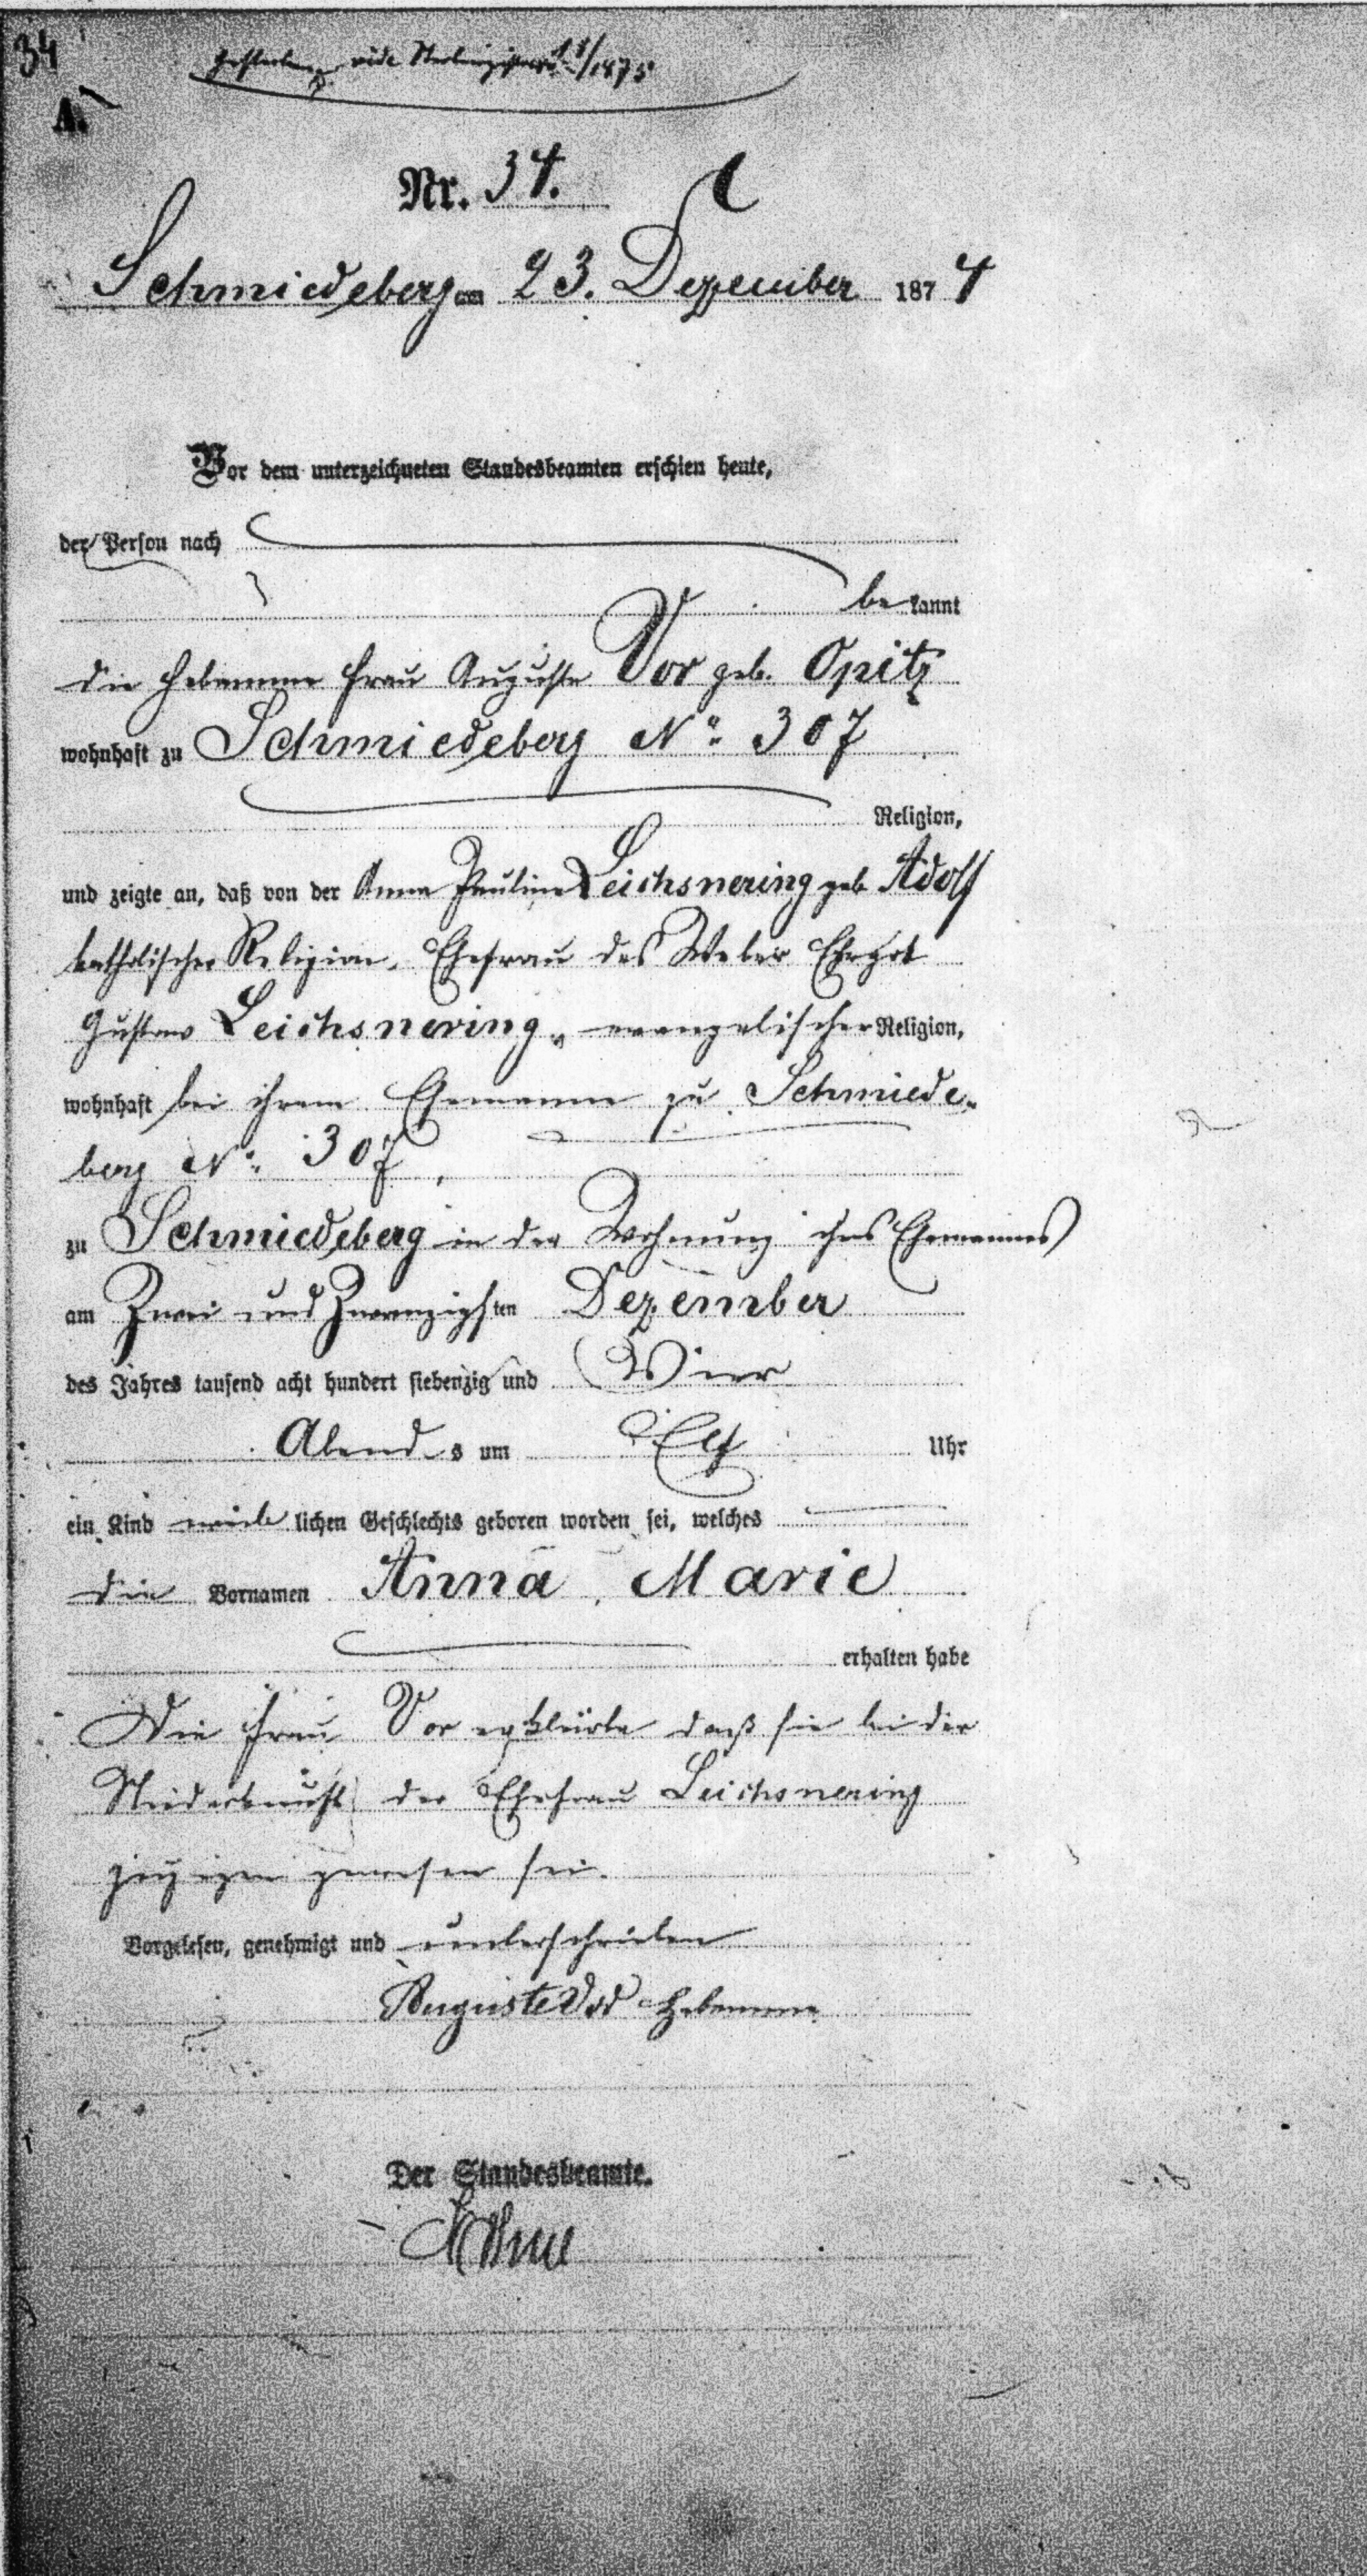 34
gestorben vide Sterberegister /1875
A.
Nr. 34.
Schmiedeberg am 23. Dezember 1874
Vor dem unterzeichneten Standesbeamten erschien heute,
der Person nach
be kannt
die Hebamme Frau Auguste Vor geb. Opitz
wohnhaft zu Schmiedeberg No. 307
Religion,
und zeigte an, daß von der Anna Pauline Leichsnering geb. Adolf
katholischer Religion, Ehefrau des Weber
Gustav Leichsnering, evangelischer Religion,
wohnhaft bei ihrem Ehemanne zu Schmiede-
berg No. 307,
zu Schmiedeberg in der Wohnung ihres Ehemannes
am Zwei und Zwanzigsten Dezember
des Jahres tausend acht hundert siebenzig und Vier
Abend s um Elf Uhr
ein Kind weib lichen Geschlechts geboren worden sei, welches
die Vornamen Anna Marie
erhalten habe
Die Frau Vor erklärte daß sie bei der
Niederkunft der Ehefrau Leichsnering
zugegen gewesen sei.
Vorgelesen, genehmigt und unterschrieben
Auguste Vor Hebamme
Der Standesbeamte.